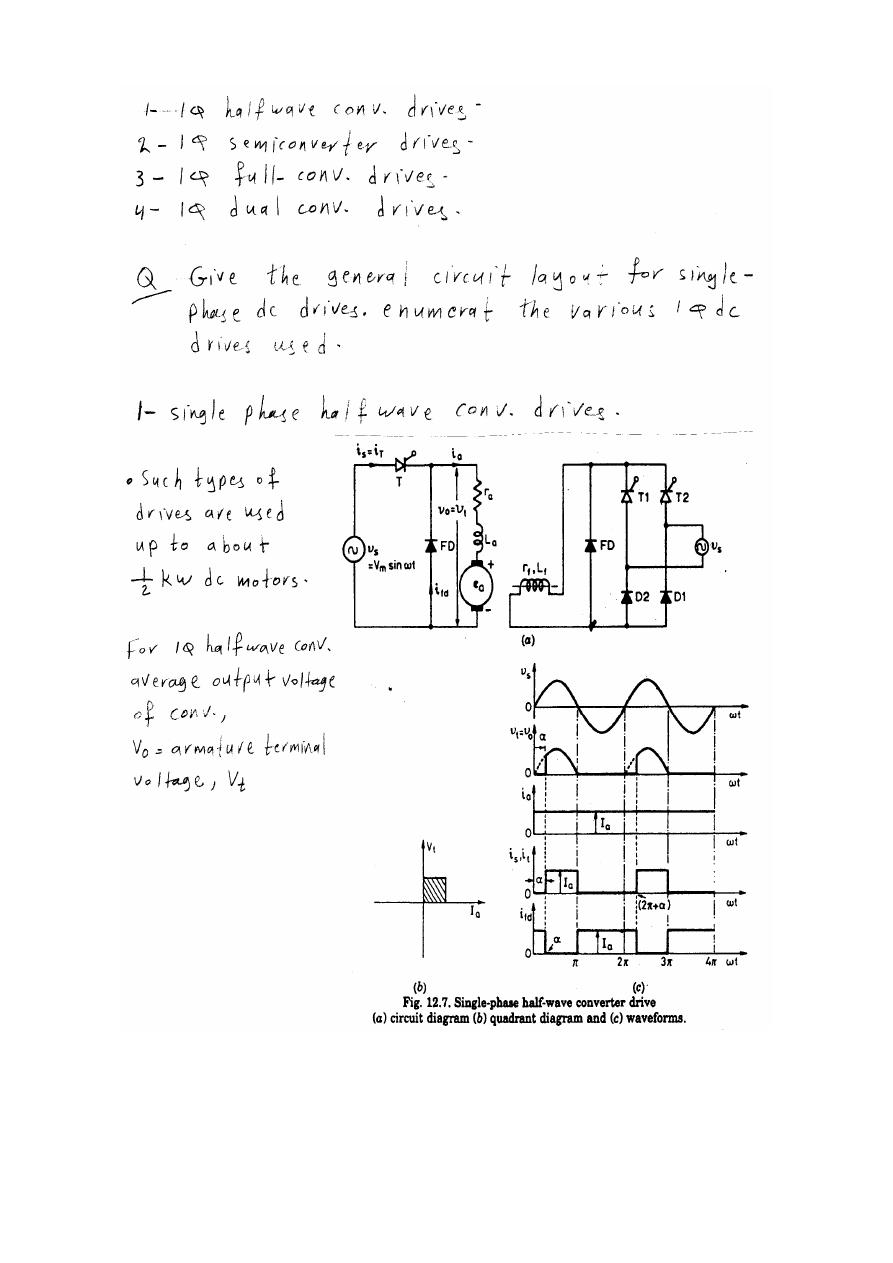 1- 1φ halfwave conv. drives.
2 - 1φ semiconverter drives.
3 - 1φ full- conv. drives.
4- 1φ dual conv. drives.
Q Give the general circuit layout for single-
phase dc drives. enumerat the various 1φ dc
drives used.
1- single phase half wave conv. drives.
• Such types of
drives are used
up to about
1/2 kw dc motors.
For 1φ halfwave conv.
average output voltage
of conv.,
V₀ = armature terminal
voltage, Vt
is=iT
T
ia
ra
v₀=vt
La
vs
=Vm sin ωt
FD
ifd
ea
+
-
rf, Lf
FD
T1
T2
vs
D2
D1
(a)
vs
0
ωt
vt=v₀
α
0
ωt
ia
Ia
0
ωt
is,it
α
Ia
0
(2π+α)
ωt
ifd
α
Ia
0
π 2π 3π 4π ωt
Vt
Ia
(b)
(c)
Fig. 12.7. Single-phase half-wave converter drive
(a) circuit diagram (b) quadrant diagram and (c) waveforms.